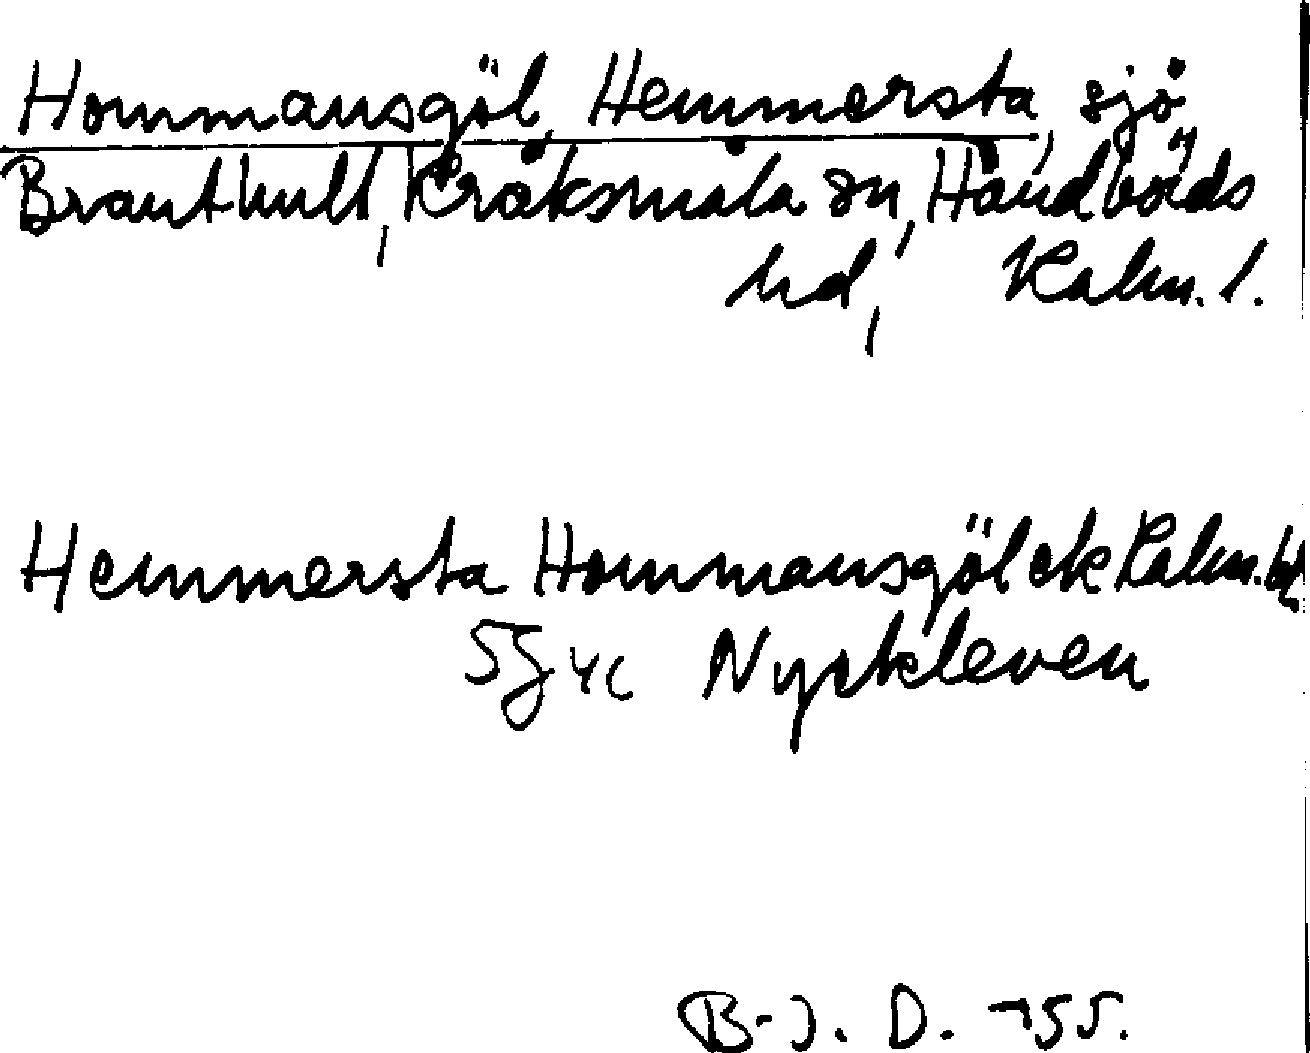 Hommansgöl, Hemmersta, sjö
Branthult, Kråksmåla sn, Handbörds
hd, Kalm. l.
Hemmersta Hommansgöl ek Kalm.
5G4c Nyckleven
B-J. D. -55.